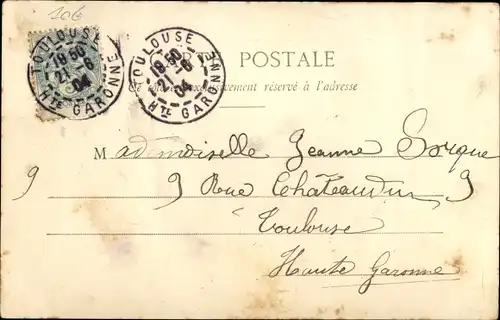 106
TOULOUSE
18 50
21 -6
04
Hte GARONNE
TOULOUSE
18 50
21 -6
04
Hte GARONNE
CARTE POSTALE
Ce côté est exclusivement réservé à l'adresse
Mademoiselle Jeanne Sorque
9 9 Rue Chateaudun 9
Toulouse
Haute Garonne